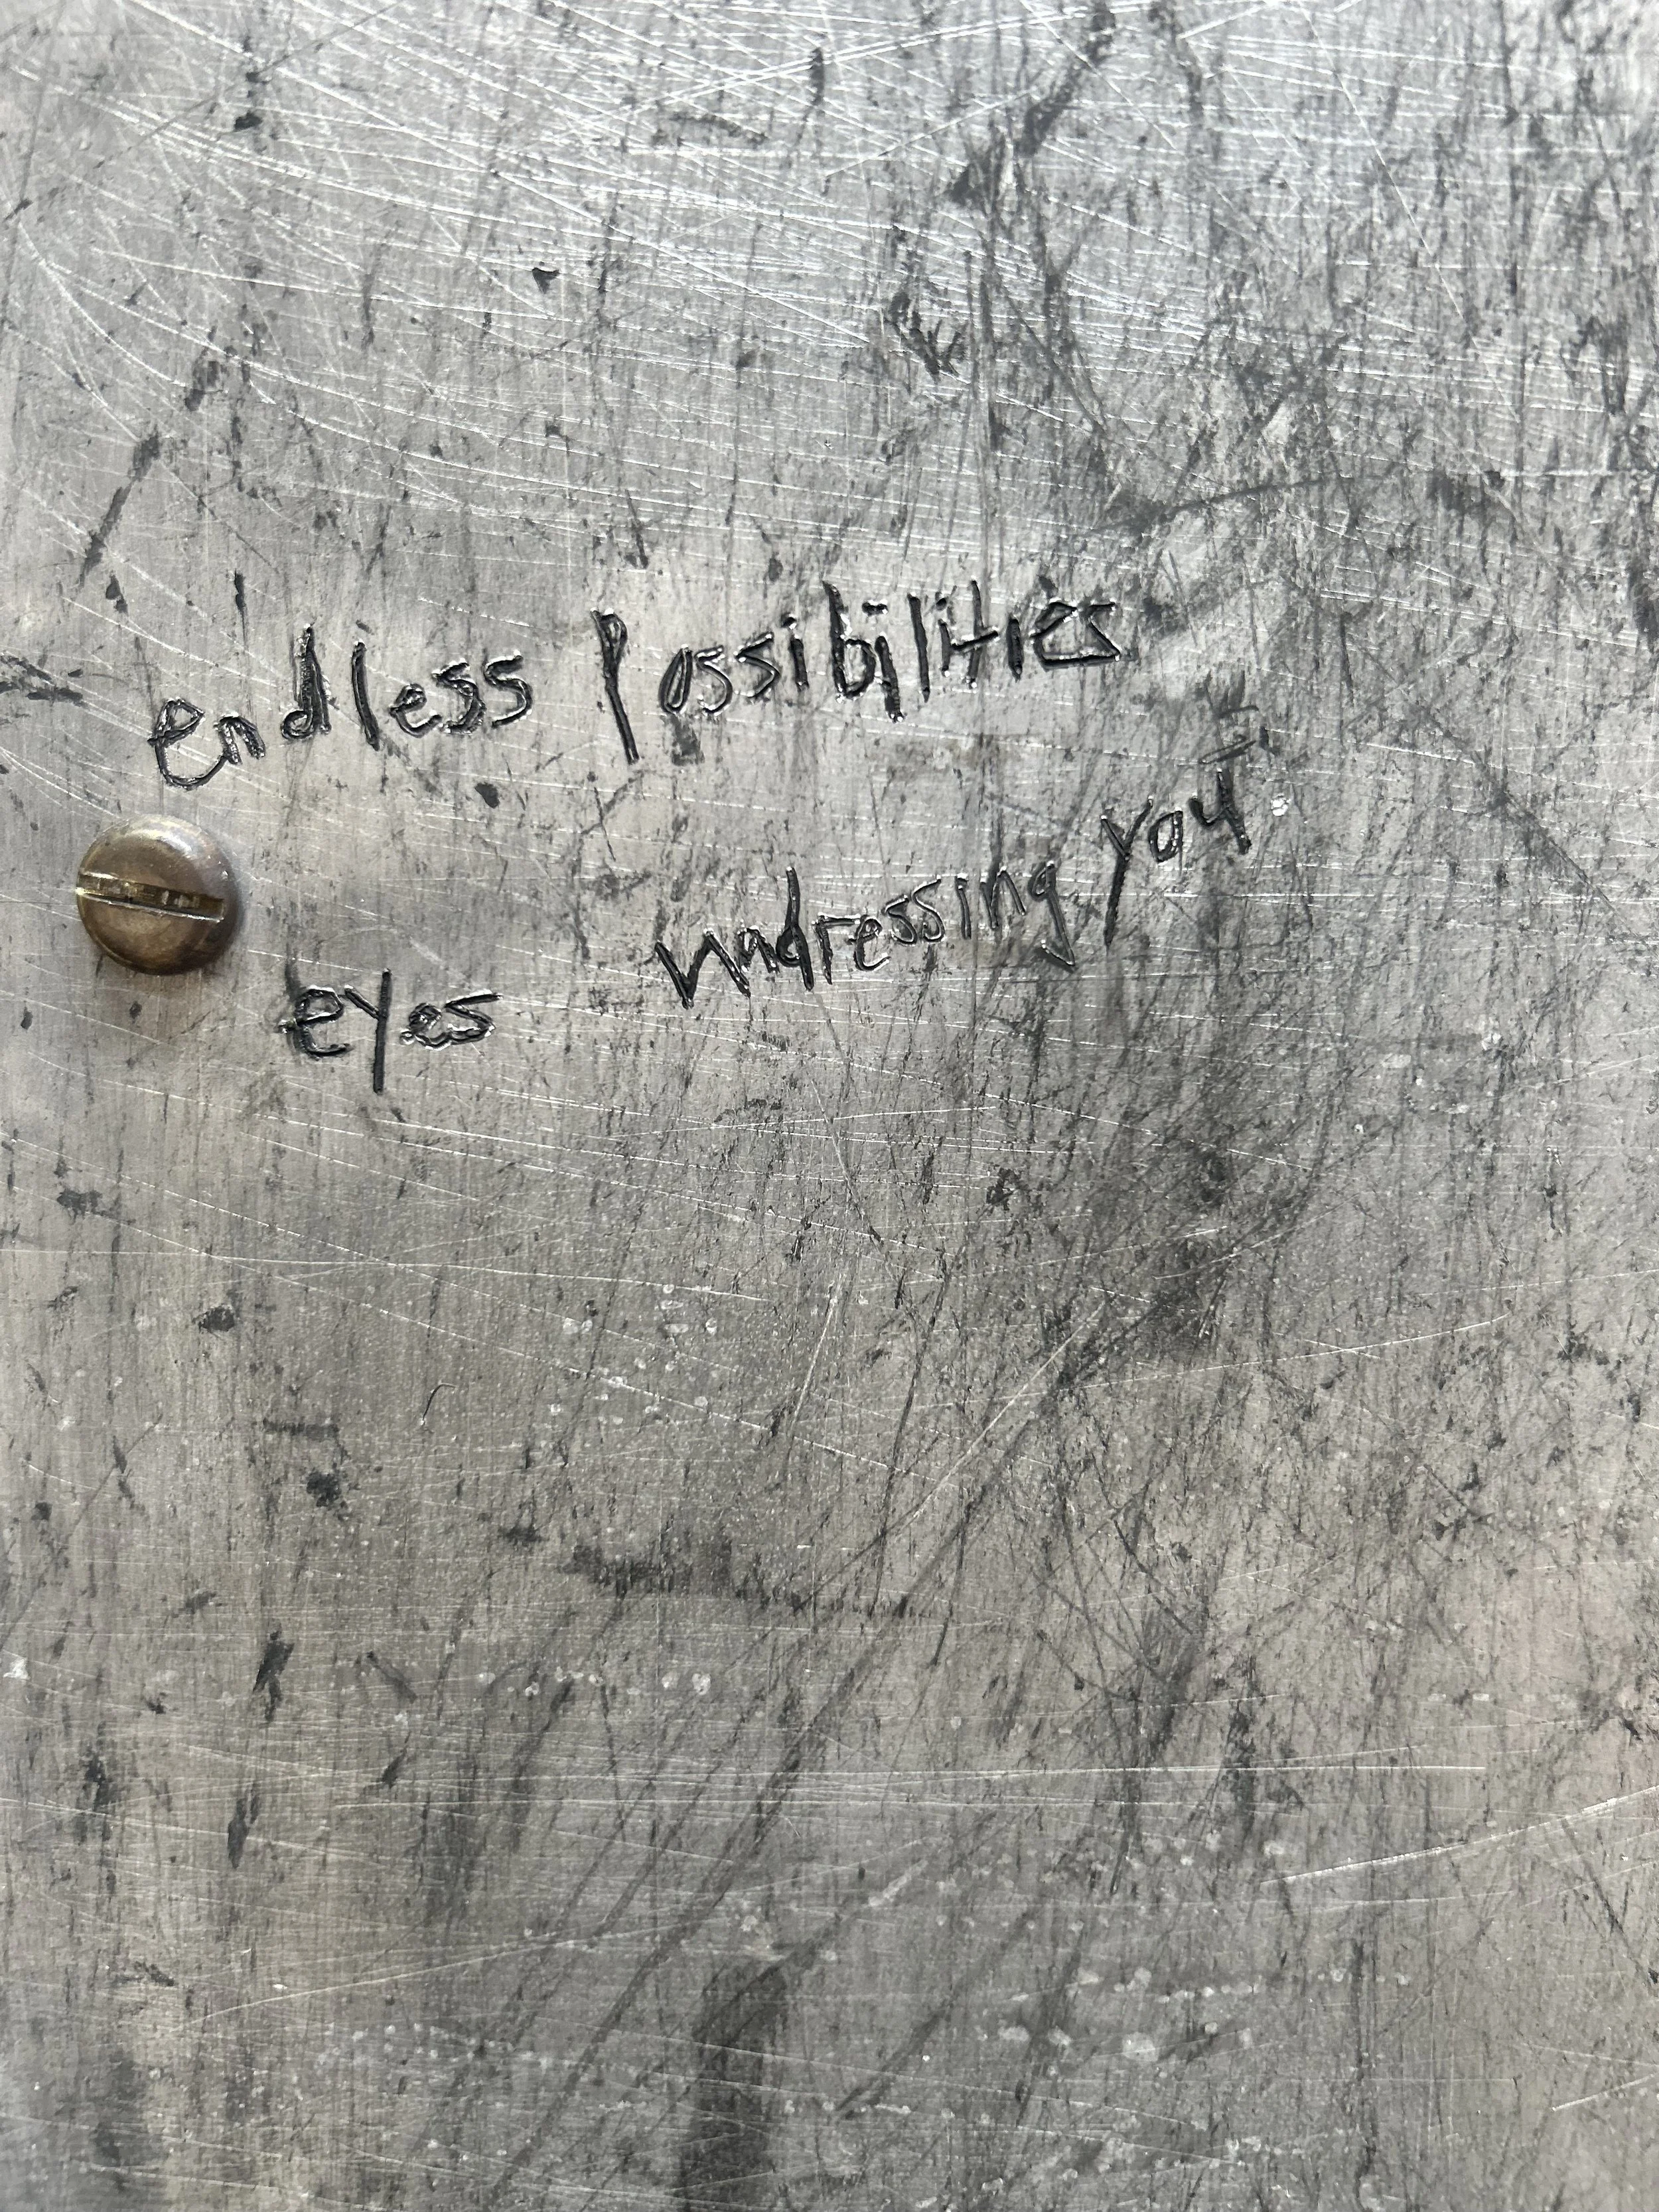 endless possibilities
eyes undressing you